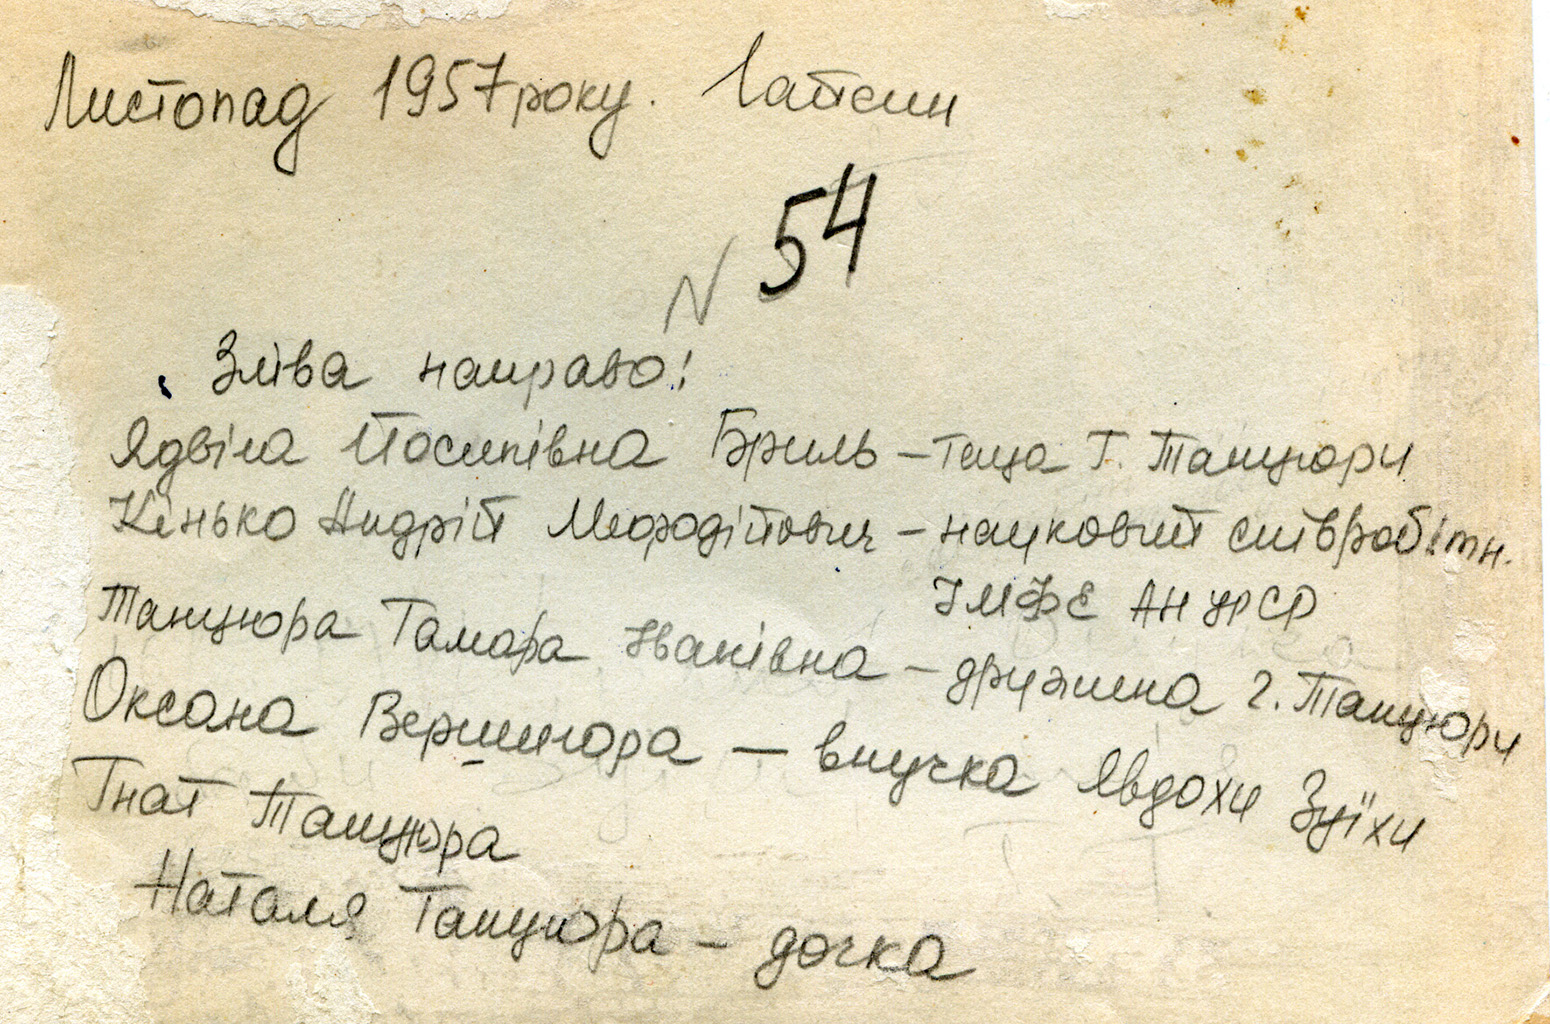 Листопад 1957 року. Гайсин
N 54
Зліва направо:
Ядвіга Йосипівна Бриль – теща Г. Танцюри
Кінько Андрій Мефодійович – науковий співробітн.
ІМФЕ АН УРСР
Танцюра Тамара Іванівна – дружина Г. Танцюри
Оксана Вершигора – внучка Явдохи Зуїхи
Гнат Танцюра
Наталя Танцюра – дочка